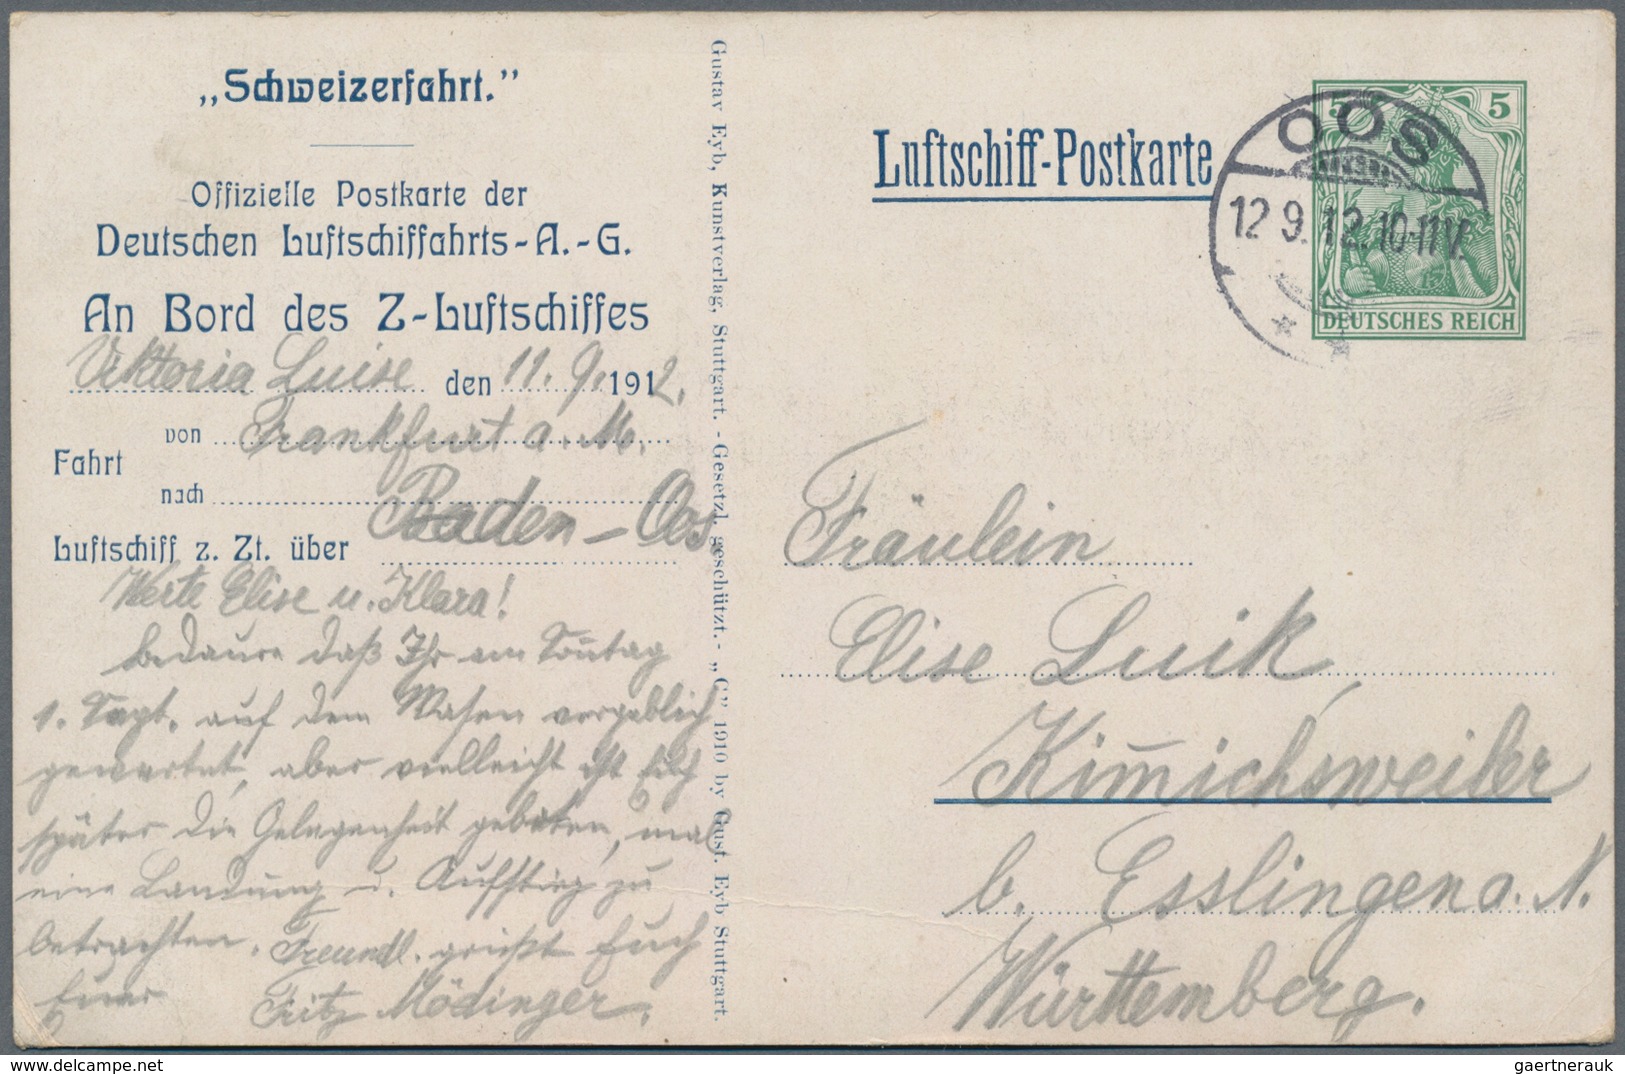 „Schweizerfahrt.”
Offizielle Postkarte der
Deutschen Luftschiffahrts-A.-G.
An Bord des Z-Luftschiffes
Viktoria Luise den 11. 9. 1912.
Fahrt
von Frankfurt a. M.
nach Baden-Oos
Luftschiff z. Zt. über
Werte Elise u. Klara!
bedaure daß Ihr am Sonntag
1. Sept. auf dem Wasen vergeblich
gewartet, aber vielleicht ist Euch
später die Gelegenheit geboten, mal
eine Landung u. Aufstieg zu
betrachten. Freundl. grüßt Euch
Euer Fritz Mödinger.
Gustav Eyb, Kunstverlag, Stuttgart. - Gesetzl. geschützt. - „C” 1910 by Gust. Eyb Stuttgart.
Luftschiff-Postkarte
5 5
DEUTSCHES REICH
OOS
12 9. 12. 10-11 V.
* *
Fräulein
Elise Luik,
Kim̄ichsweiler
b. Esslingen a. N.
Württemberg.
gaertnerauk